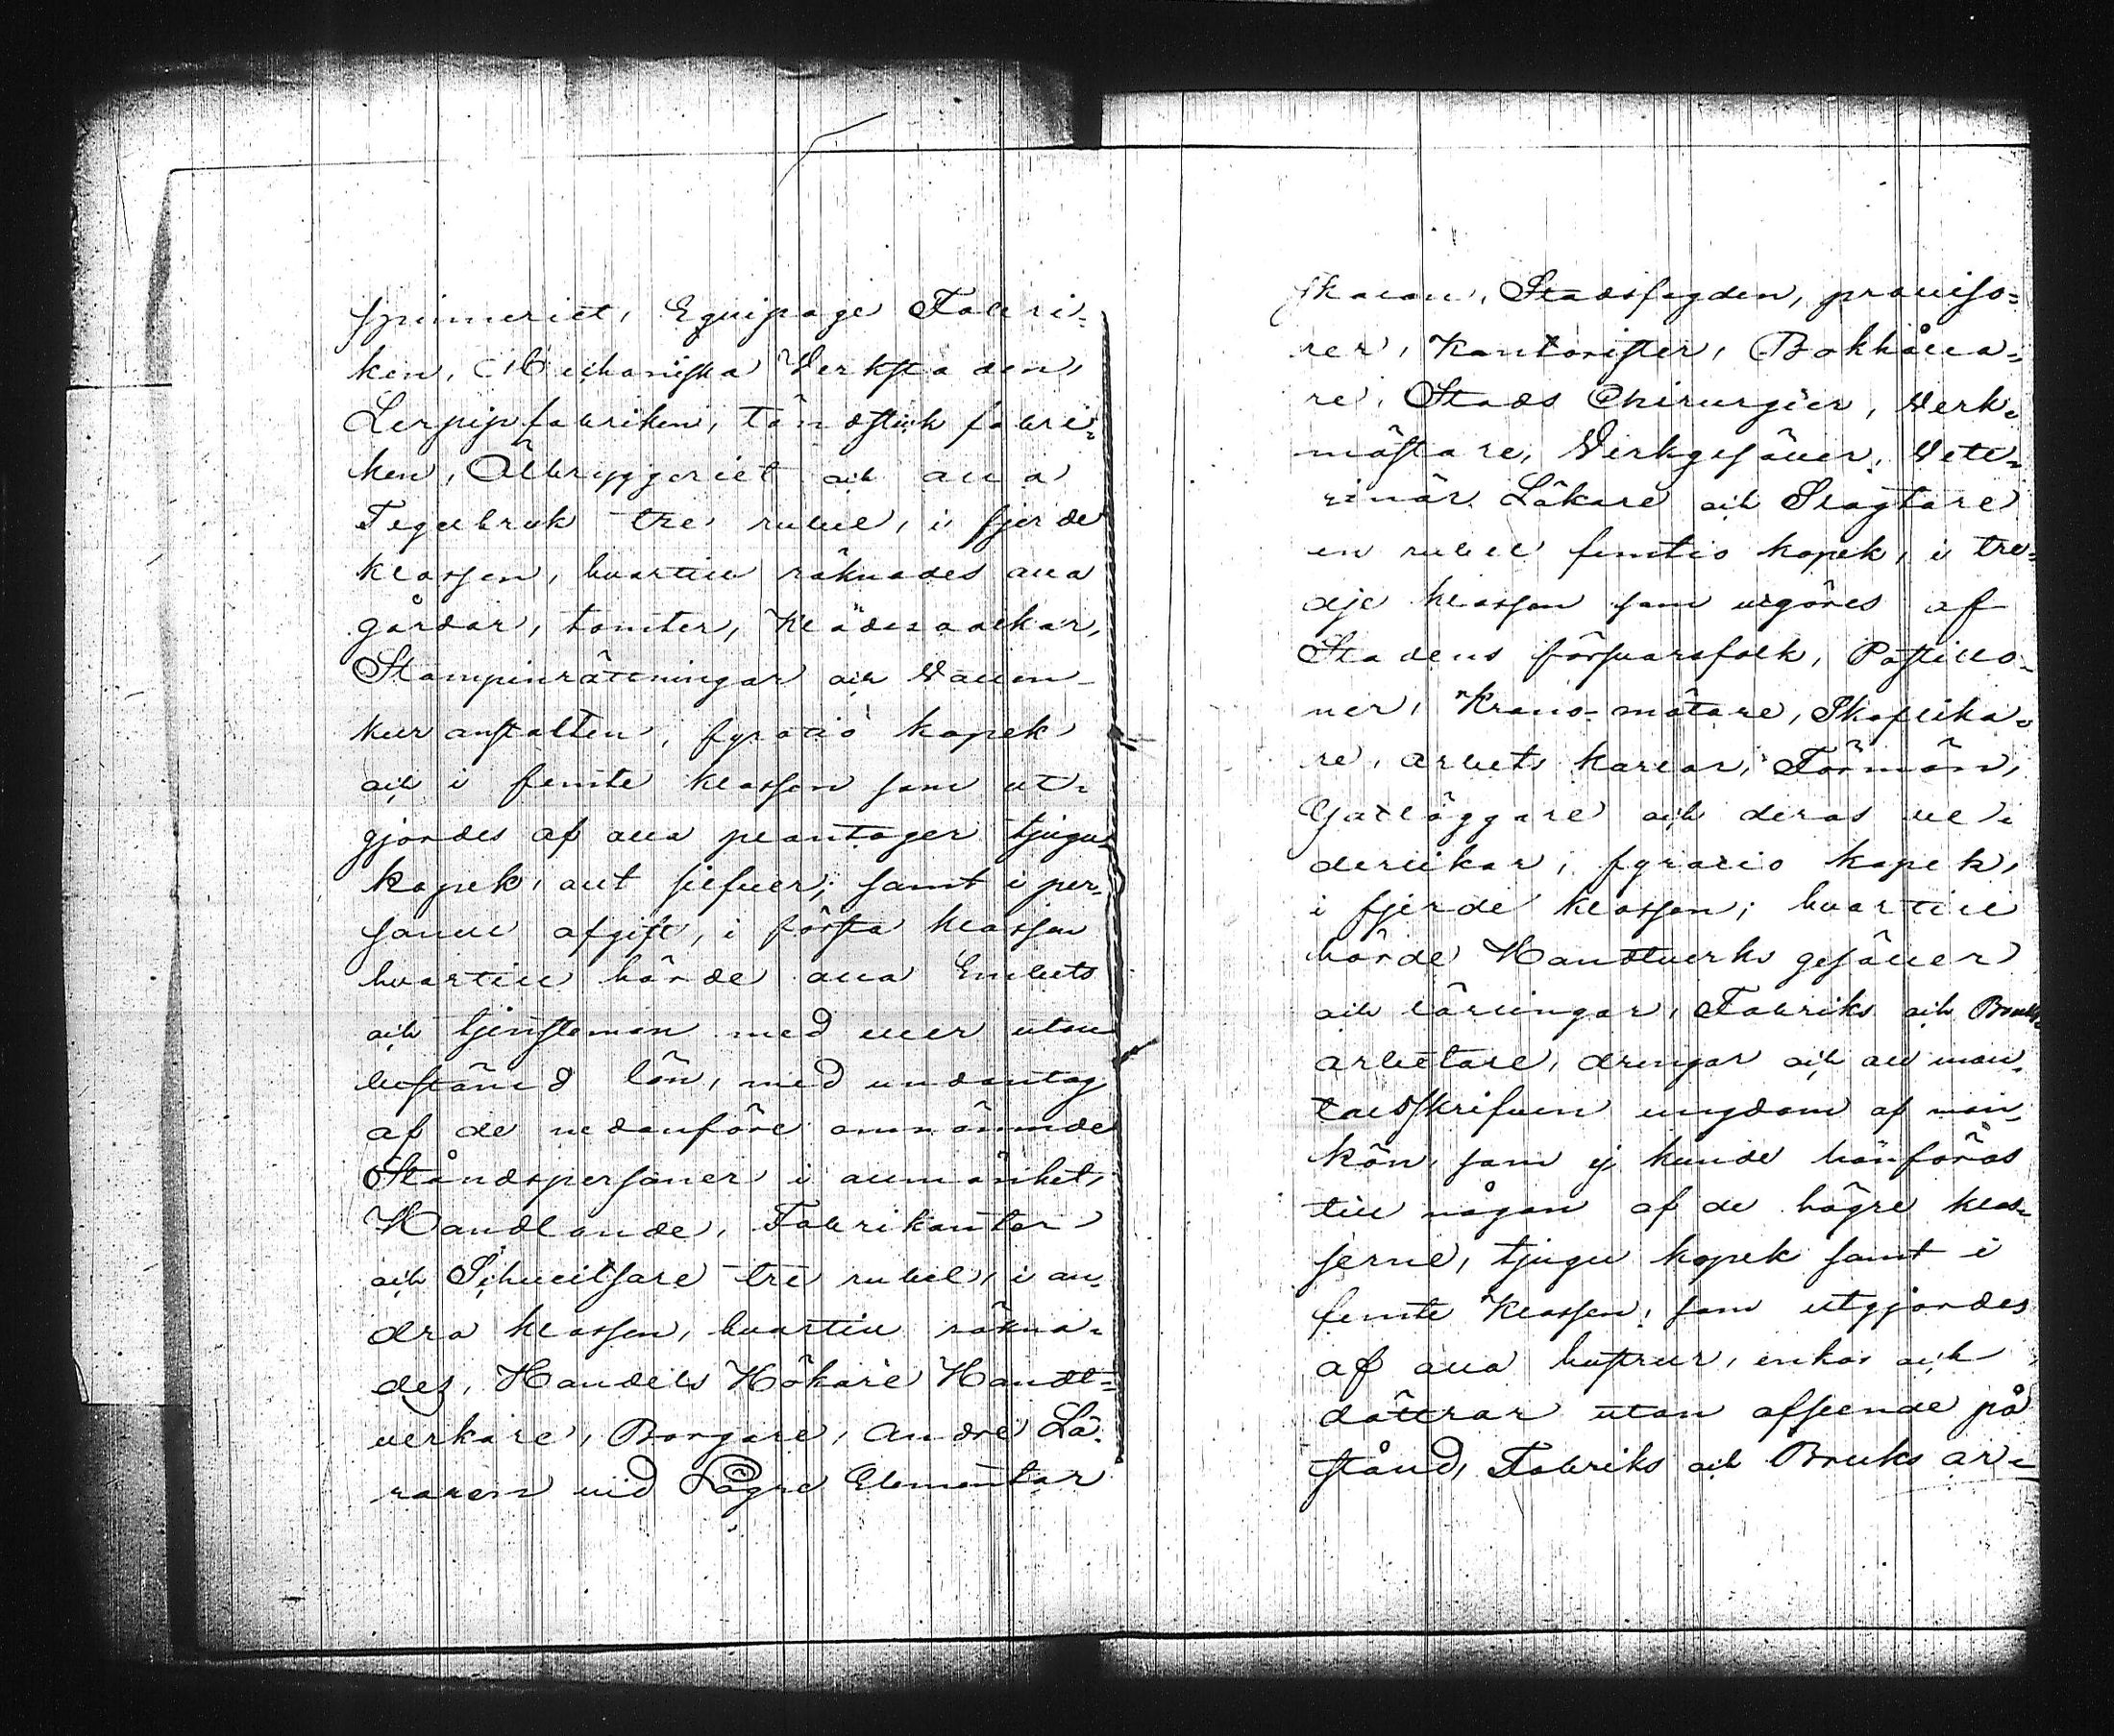 spinneriet, Equipage Fabri-
ken, Mechaniska Verkstaden,
Lerpipfabriken, tändstick fabri-
ken, Ölbryggeriet och alla
Tegelbruk tre rubel, i fjerde
klassen, hvartill räknades alla
gårdar, tomter, Klädesvalkar,
Stampinrättningar och Vatten-
kur anstalten, fyratio kopek
och i femte klassen som ut-
gjordes af alla plantager tjugu
kopek, allt silfver; samt i per-
sonell afgift, i första klassen
hvartill hörde alla Embets
och tjensteman med eller utan
bestämd lön, med undantag
af de nedanföre omnämnde
Ståndspersoner i allmänhet,
Handlande, Fabrikanter
och Schveitsare tre rubel, i an-
dra klassen, hvartill räkna-
des, Handels Hökare Handt-
verkare, Borgare, Andre Lä-
raren vid Lägre Elementar
skolan, Stadsfogden, proviso-
rer, Kontorister, Bokhålla-
re, Stads Chirurgier, Verk-
mästare, Verkgesäller, Vete-
rinär Läkare och Slagtare
en rubel femtio kopek, i tre-
dje klassen som utgöres af
Stadens försvarsfolk, Postillo-
ner, Krono-mätare, Skeplika-
re, arbets karlar, Formän,
Gatläggare och deras ve-
derlikar, fyratio kopek,
i fjerde klassen; hvartill
hörde Handtverks gesäller
och lärlingar, Fabriks och Bruks-
arbetare, drengar och all man-
talsskrifven ungdom af man-
kön, som ej kunde hänföras
till någon af de högre klas-
serne, tjugu kopek samt i
femte Klassen, som utgjordes
af alla hustrur, enkor och
döttrar utan afseende på
stånd, Fabriks och Bruks ar-